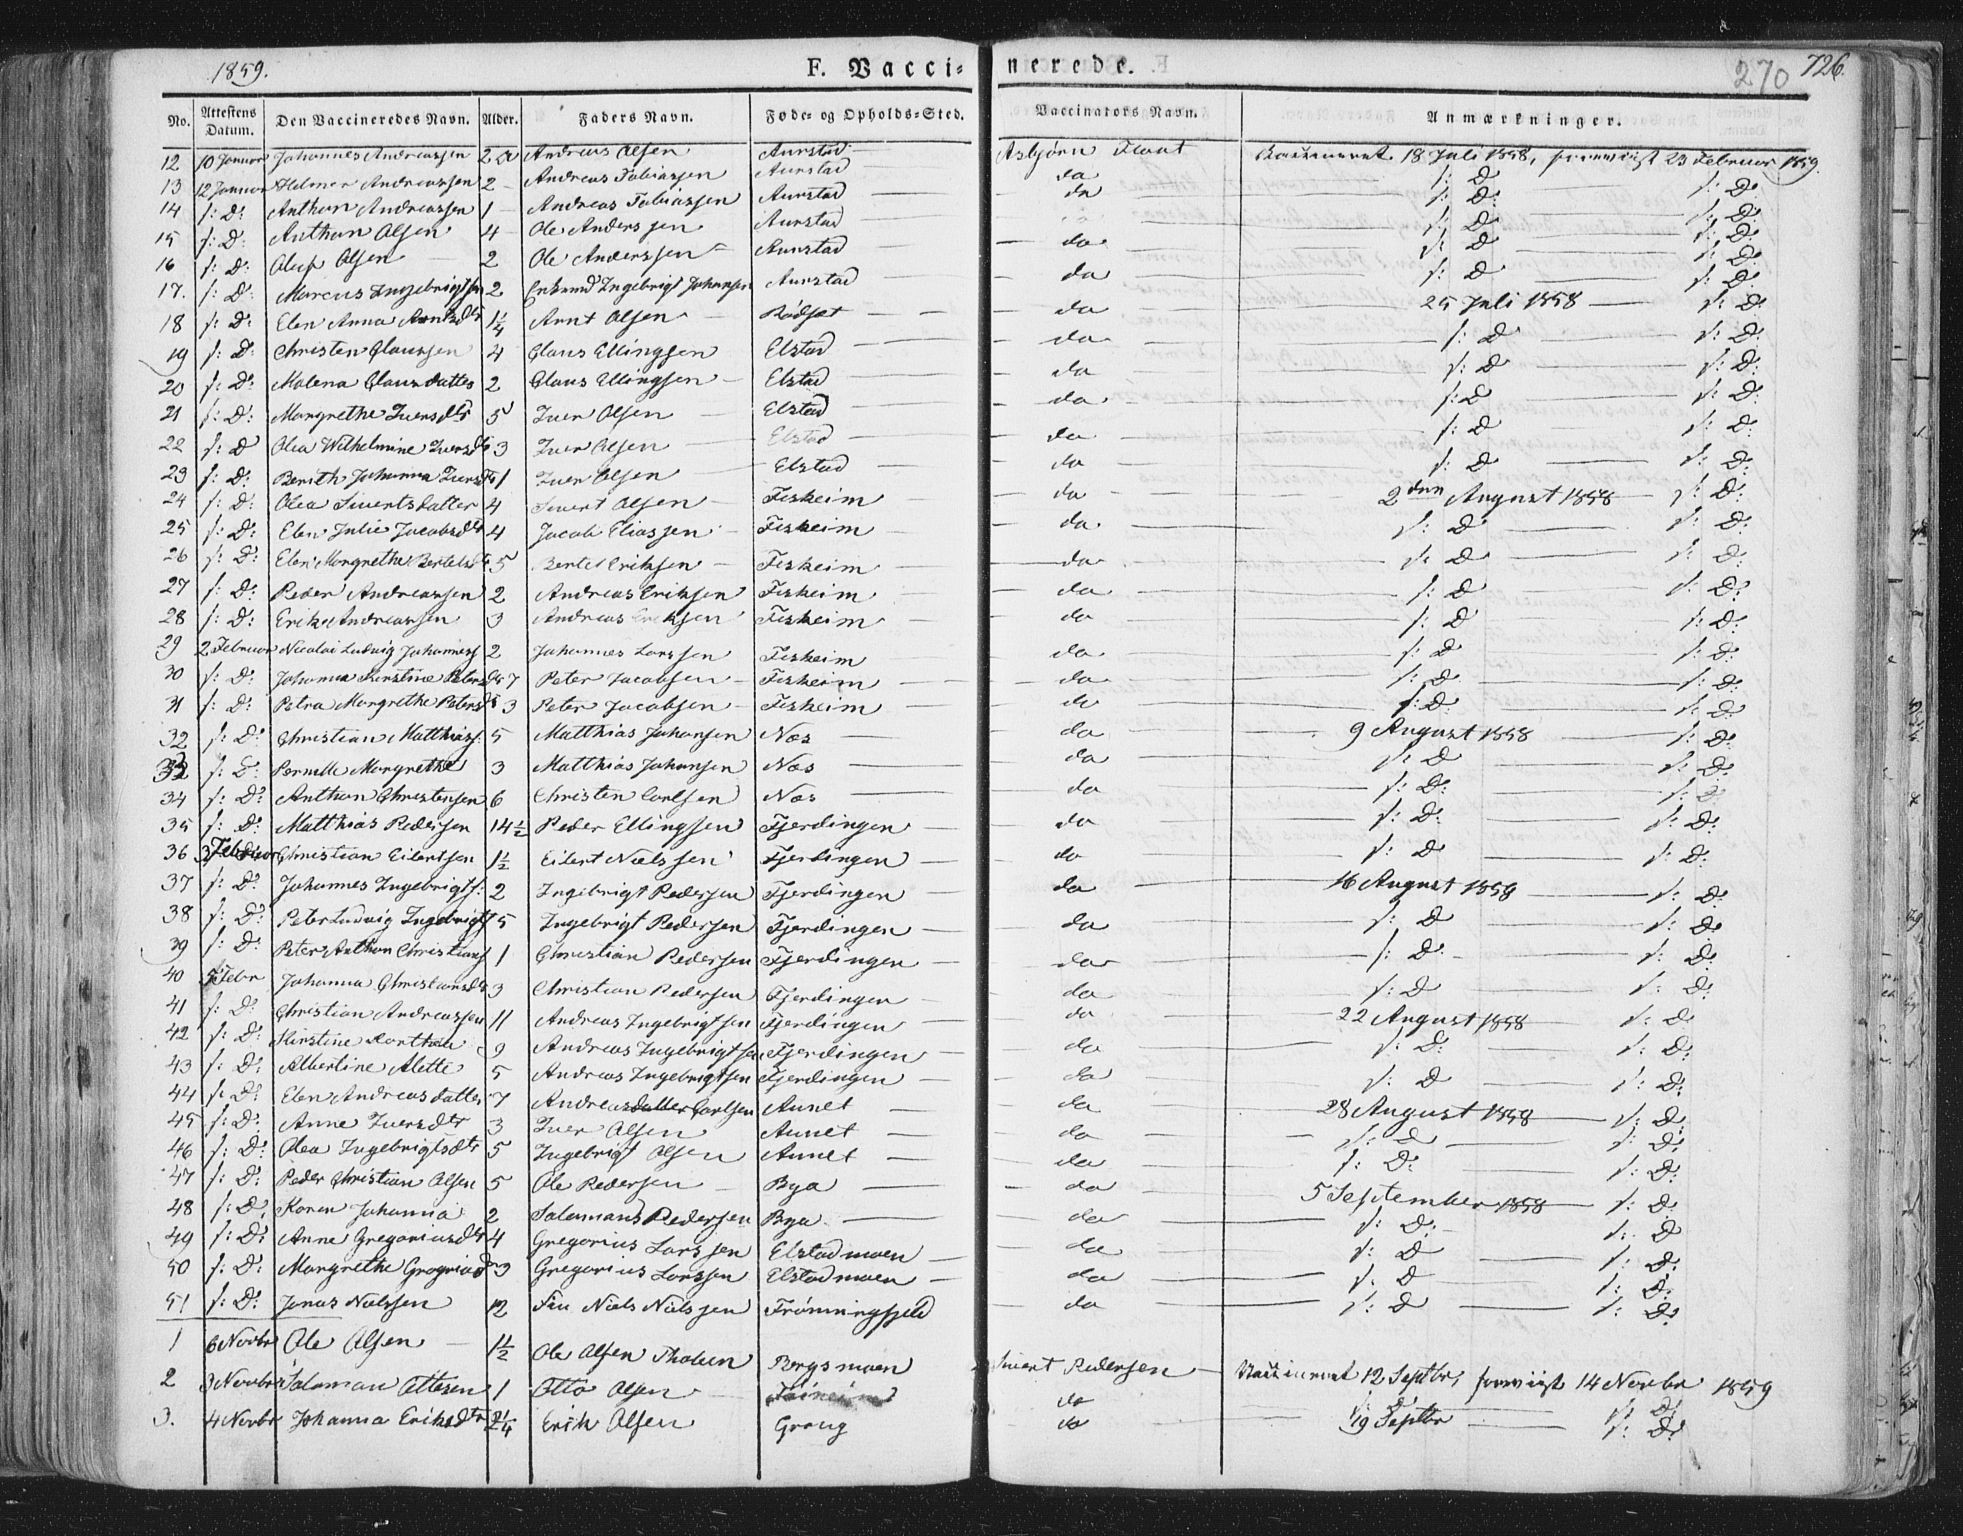 1859. F. Vaccinerede. 270 726.
No. Attestens Datum. Den Vaccineredes Navn. Alder. Faders Navn. Føde- og Opholds-Sted. Vaccinators Navn. Anmærkninger.
12 10 Januar Johannes Andreassen 2 a Andreas Olsen Aunstad Asbjørn Flaat Vaccineret 18 Juli 1858, foreviist 23 Februar 1859.
13 12 Januar Helmer Andreassen 2 Andreas Tobiassen Aunstad da f: D f: D:
14 f: D: Anthon Andreassen 1 Andreas Tobiassen Aunstad da f: D: f: D:
15 f: D: Anthon Olsen 4 Ole Anderssen Aunstad f: D f: D:
16 f: D: Oluf Olsen 2 Ole Anderssen Aunstad da f: D f: D:
17. f: D: Marcus Ingebrigtsen 2 Enkemd Ingebrigt Johansen Aunstad da f: D f: D:
18 f: D: Elen Anna Arntsdtr 1¼ Arnt Olsen Rødset da 25 Juli 1858 f: D:
19 f: D: Christen Claussen 4 Claus Ellingsen Elstad da f: D f: D:
20 f: D: Malena Clausdatter 2 Claus Ellingsen Elstad da f: D f: D:
21 f: D: Margrethe Iversdtr 5 Iver Olsen Elstad da f: D f: D:
22 f: D Olea Wilhelmine Iversdtr 3 Iver Olsen Elstad da f: D f: D:
23 f: D: Berith Johanna Iversdtr 1 Iver Olsen Elstad da f: D f: D:
24 f: D: Olea Sivertsdatter 4 Sivert Olsen Fiskeim da 2den August 1858 f: D:
25 f: D: Elen Julie Jacobsdtr 4 Jacob Eliassen Fiskeim da f: D f: D:
26 f: D: Elen Margrethe Bertelsdtr 5 Bertel Eriksen Fiskeim da f: D f: D:
27 f: D: Peder Andreassen 2 Andreas Eriksen Fiskeim da f: D f: D:
28 f: D: Erik Andreassen 3 Andreas Eriksen Fiskeim da f: D f: D:
29 2 Februar Nicolai Ludvig Johanness 2 Johannes Larssen Fiskeim da f: D f: D:
30 f: D: Johanna Kirstine Petersdtr 7 Peter Jacobsen Fiskeim da f: D f: D:
31 f: D: Petra Margrethe Petersdtr 3 Peter Jacobsen Fiskeim da f: D: f: D:
32 f: D: Christian Matthiass: 5 Matthias Johansen Næs da 9 August 1858 f: D:
33 f: D: Pernelle Margrethe 3 Matthias Johansen Næs da f: D f: D:
34 f: D: Anthon Christensen 6 Christen Carlsen Næs da f: D: f: D
35 f: D: Matthias Pedersen 14½ Peder Ellingsen Fjerdingen da f: D: f: D:
36 3 Februar Christian Eilertsen 1½ Eilert Nielssen Fjerdingen da f: D f: D:
37 f: D: Johannes Ingebrigts: 2 Ingebrigt Pedersen Fjerdingen da 16 August 1858 f: D:
38 f: D: Peter Ludvig Ingebrigts 5 Ingebrigt Pedersen Fjerdingen da f: D f: D:
39 f: D: Peter Anthon Christians 1 Christian Pedersen Fjerdingen da f: D: f: D:
40 5 Febr Johanna Christiansdtr 3 Christian Pedersen Fjerdingen da f: D f: D:
41 f: D: Christian Andreassen 11 Andreas Ingebrigtsen Fjerdingen da 22 August 1858 f: D
42 f: D: Kirstine 9 Andreas Ingebrigtsen Fjerdingen da f: D: f: D:
43 f: D: Albertine Alette 5 Andreas Ingebrigtsen Fjerdingen da f: D f: D:
44 f: D: Elen Andreasdatter 7 Andreas Carlsen Aunet da 28 August 1858 f: D:
45 f: D: Anne Iversdtr 3 Iver Olsen Aunet da f: D f: D:
46 f: D: Olea Ingebrigtsdtr 5 Ingebrigt Olsen Aunet da f: D: f: D:
47 f: D: Peder Christian Olsen 5 Ole Pedersen Bya da 5 September 1858 f: D:
48 f: D: Karen Johanna 2 Salamans Pedersen Bya da f: D: f: D
49 f: D: Anne Gregoriusdtr 4 Gregorius Larssen Elstadmoen da f: D f: D:
50 f: D: Margrethe 3 Gregorius Larssen Elstadmoen da f: D f: D:
51 f: D: Jonas Nielssen 12 Niels Nielssen Trønningfjeld da f: D f: D:
1 6 Novbr Ole Olsen 1½ Ole Olsen Bergsmoen Sivert Pedersen Vaccineret 12 Septbr, foreviist 14 Novbr 1859
2 3 Novbr Salamon Ottesen 1 Otto Olsen do f: D f: D:
3. 4 Novbr Johanna Eriksdtr 2¼ Erik Olsen Grong do 19 Septbr f: D: